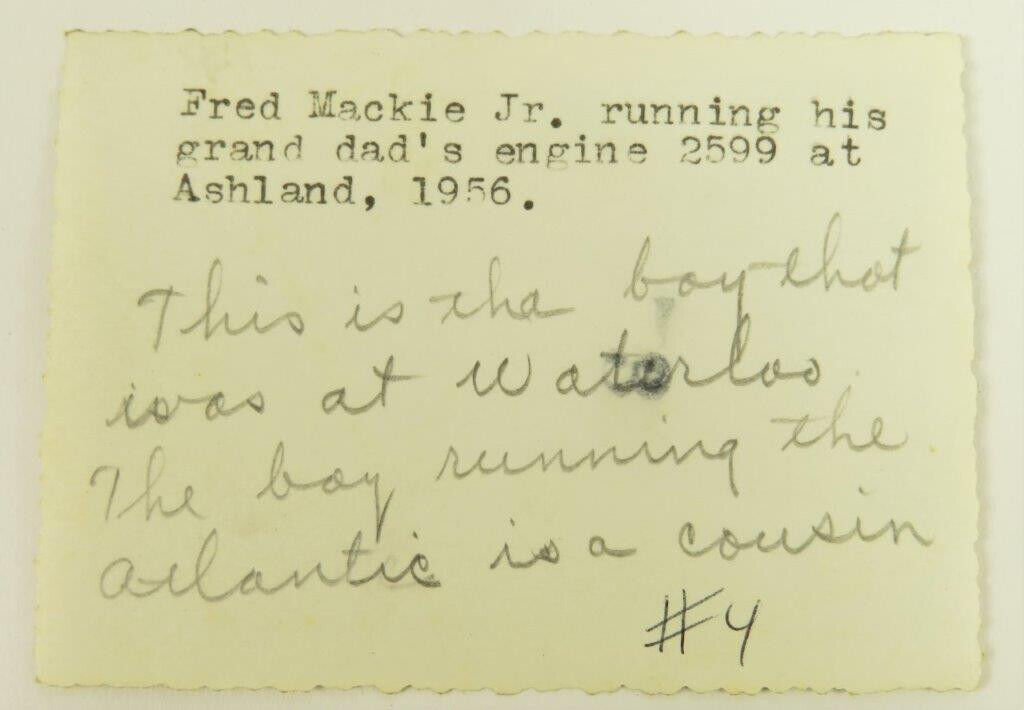 Fred Mackie Jr. running his
grand dad's engine 2599 at
Ashland, 1956.
This is the boy that
was at Waterloo.
The boy running the
Atlantic is a cousin
#4